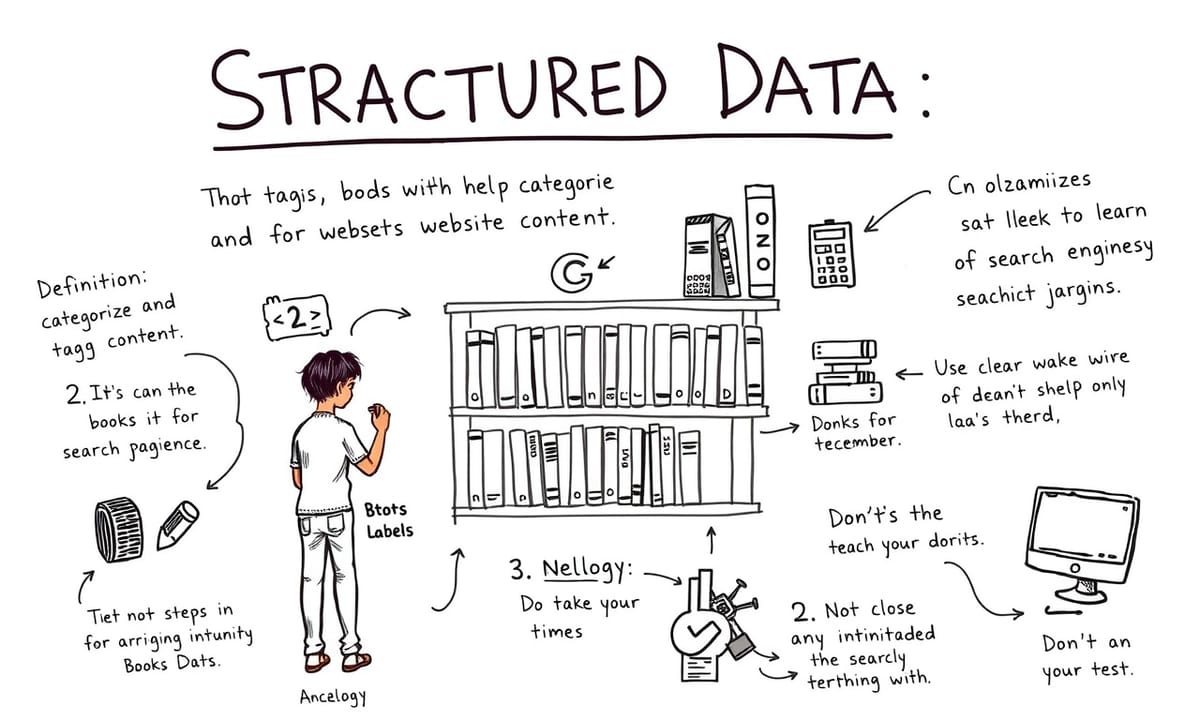 STRACTURED DATA:
Thot tagis, bods with help categorie
and for websets website content.
Definition:
categorize and
tagg content.
2. It's can the
books it for
search pagience.
Tiet not steps in
for arriging intunity
Books Dats.
<2>
Btots
Labels
Ancelogy
G
ONO
Cn olzamiizes
sat lleek to learn
of search enginesy
seachict jargins.
Use clear wake wire
of dean't shelp only
laa's therd,
Donks for
tecember.
3. Nellogy:
Do take your
times
Don't's the
teach your dorits.
2. Not close
any intinitaded
the searcly
terthing with.
Don't an
your test.